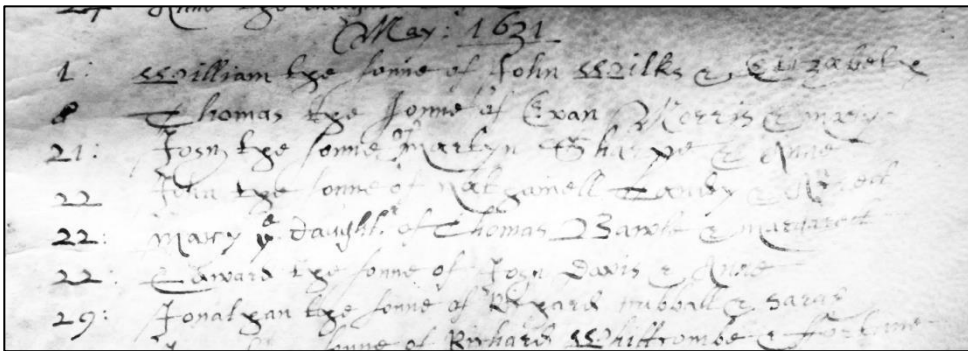 24 Anne the daught
May: 1631
1: William the sonne of John Wilks & Elizabeth
8 Thomas the sonne of Evan Morris & mary
21: John the sonne of Martyn Sharpe & Anne
22 John the sonne of Nathaniell &
22: Mary ye daught: of Thomas & Margarett
22: Edward the sonne of John Davis & Anne
29: Jonathan the sonne of Richard Hubball & Sarah
sonne of Richard Whittcombe & Fortune